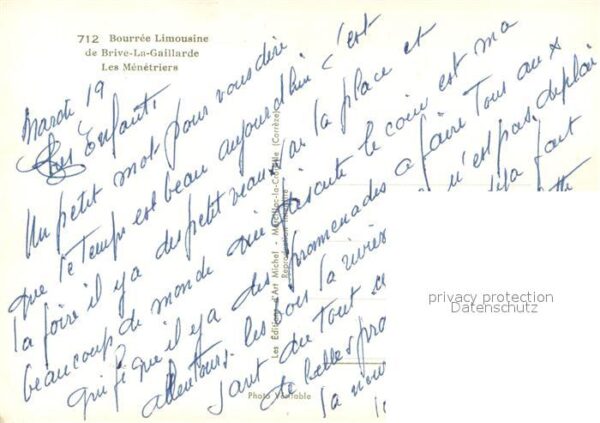 712 Bourrée Limousine
de Brive-La-Gaillarde
Les Ménétriers
Mardi 19
Chers Enfants,
Un petit mot pour vous dire
que le temps est beau aujourdhui c'est
la foire il y a des petit veaux sur la place et
beaucoup de monde le coin est ma
qui fi que il y a des promenades a faire tous aux
alentours. les bois la n'est pas deplai
sant du tout
de belles pro
la
Les Éditions d'Art Michel - Marcillac-la-Croisille (Corrèze)
Reproduction interdite
Photo Véritable
privacy protection
Datenschutz